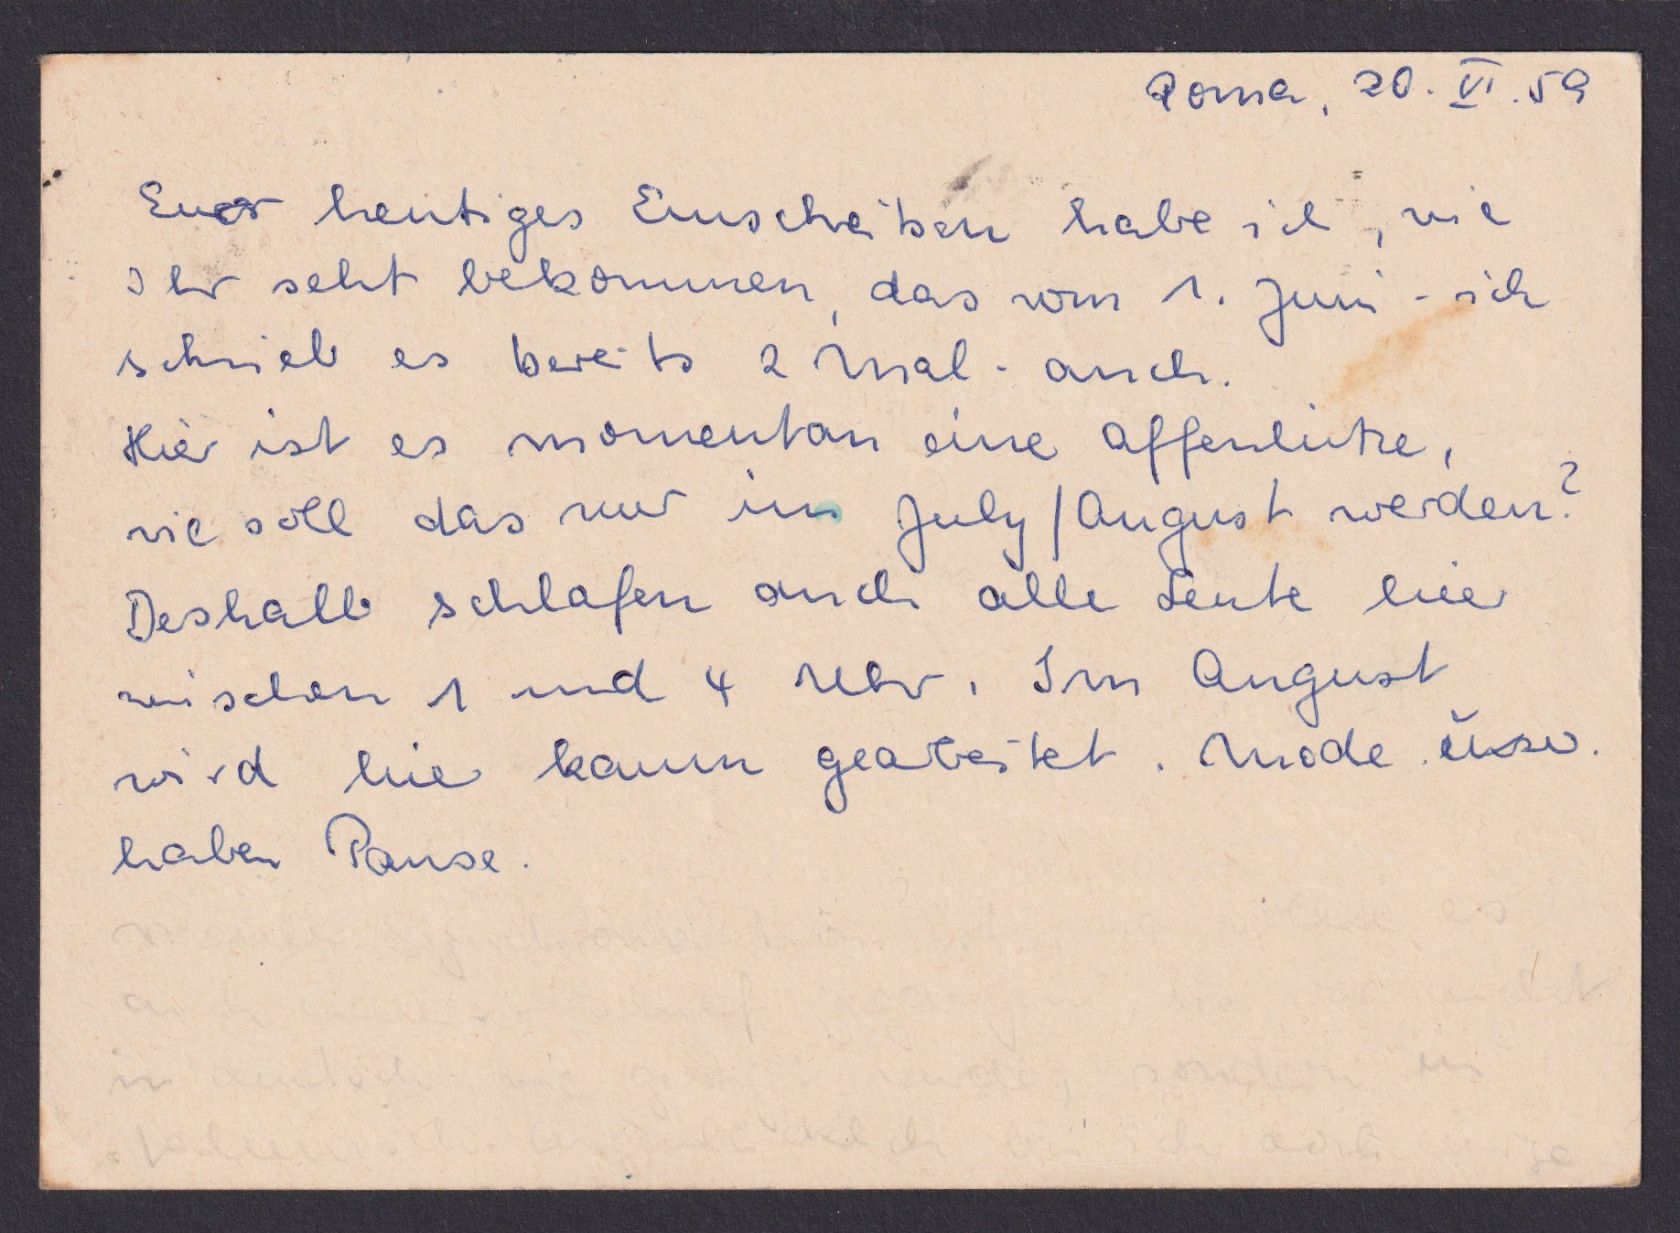 Roma, 20. VI. 59
Euer heutiges Einschreiben habe ich, wie
Ihr seht bekommen, das vom 1. Juni - ich
schrieb es bereits 2 Mal - auch.
Hier ist es momentan eine Affenhitze,
wie soll das nur im July/August werden?
Deshalb schlafen auch alle Leute hier
zwischen 1 und 4 Uhr. Im August
wird hier kaum gearbeitet. Mode usw.
haben Pause.